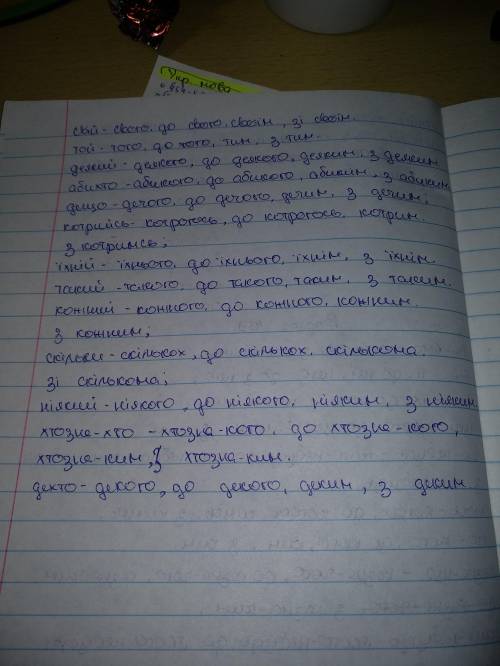 Укр. мова
свій - свого, до свого, своїм, зі своїм.
той - того, до того, тим, з тим.
деякий - деякого, до деякого, деяким, з деяким
абихто - абикого, до абикого, абиким, з абиким
дещо - дечого, до дечого, дечим, з дечим;
котрийсь - котрогось, до котрогось, котрим.
з котримсь;
їхній - їхнього, до їхнього, їхнім, з їхнім.
такий - такого, до такого, таким, з таким.
кожний - кожного, до кожного, кожним.
з кожним;
скільки - скількох, до скількох, скількома.
зі скількома;
ніякий - ніякого, до ніякого, ніяким, з ніяким
хтозна-хто - хтозна-кого, до хтозна-кого,
хтозна-ким, з хтозна-ким.
дехто - декого, до декого, деким, з деким